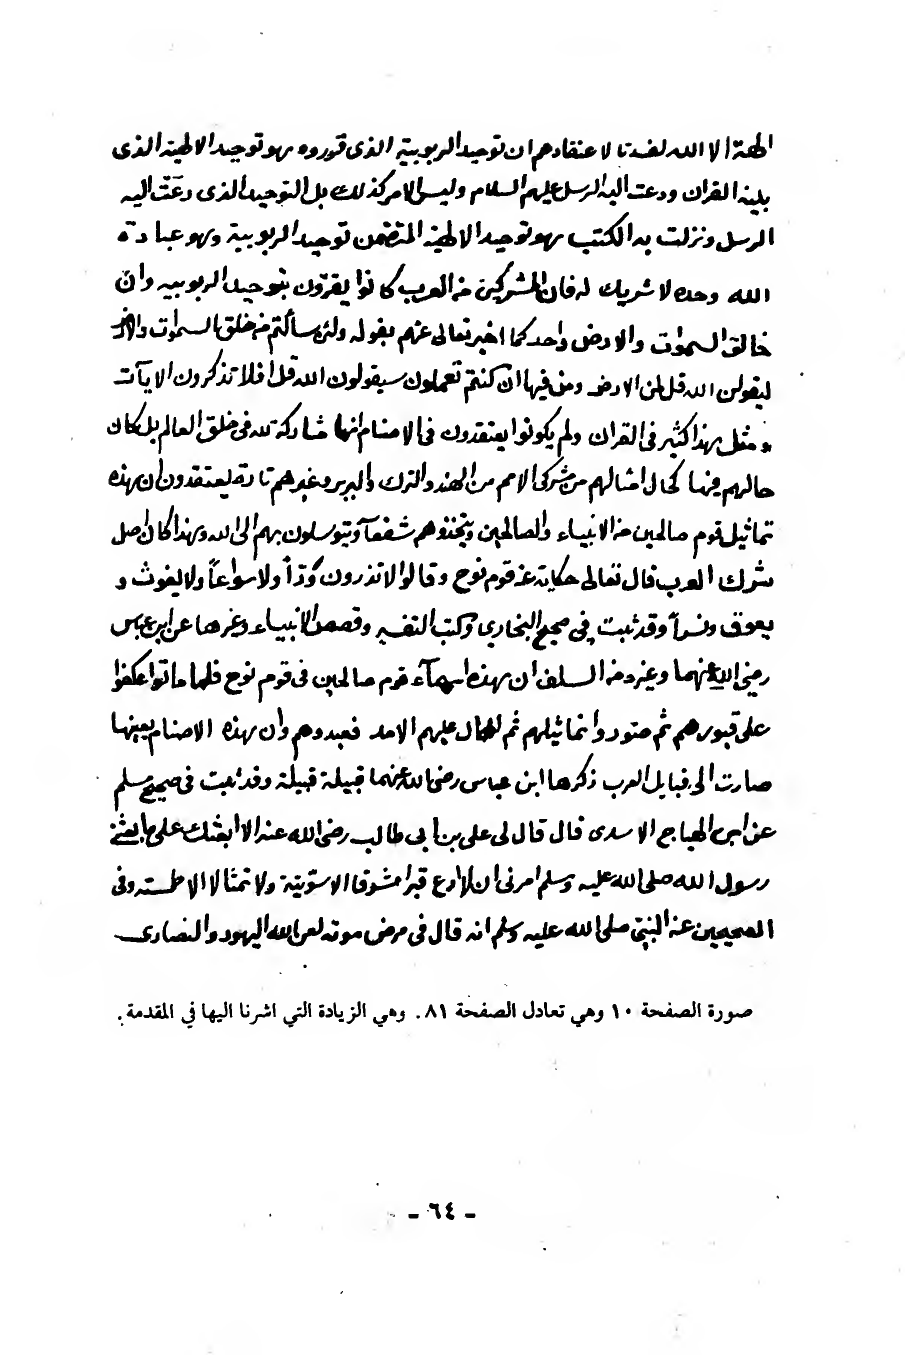 الهة الا الله لفسدتا لاعتقادهم ان توحيد الربوبية الذى قرروه هو توحيد الالهية الذى
بينه القران ودعت اليه الرسل عليهم السلام وليس الامر كذلك بل التوحيد الذى دعت اليه
الرسل ونزلت به الكتب هو توحيد الالهية المتضمن توحيد الربوبية وهو عبادة
الله وحده لا شريك له فان المشركين من العرب كانوا يقرون بتوحيد الربوبيه وان
خالق السموات والارض واحد كما اخبر تعالى عنهم بقوله ولئن سالتهم من خلق السموات والارض
ليقولن الله قل لمن الارض ومن فيها ان كنتم تعلمون سيقولون الله قل افلا تذكرون الايات
ومثل هذا كثير فى القران ولم يكونوا يعتقدون فى الاصنام انها مشاركة لله فى خلق العالم بل كان
حالهم فيها كحال امثالهم من مشركى الامم من الهند والترك والبربر وغيرهم تارة يعتقدون ان هذه
تماثيل قوم صالحين من الانبياء والصالحين ويتخذوهم شفعآ ويتوسلون بهم الى الله وهذا كان اصل
شرك العرب قال تعالى حكاية عن قوم نوح وقالوا لا تذرون ودّاً ولا سواعاً ولا يغوث و
يعوق ونسراً وقد ثبت فى صحيح البخاري وكتب التفسير وقصص الانبياء وغيرها عن ابن عباس
رضى الله عنهما وغيره من السلف ان هذه اسمآء قوم صالحين فى قوم نوح فلما ماتوا عكفوا
على قبورهم ثم صوروا تماثيلهم ثم طال عليهم الامد فعبدوهم وان هذه الاصنام بعينها
صارت الى قبايل العرب ذكرها ابن عباس رضى الله عنهما قبيلة قبيلة وقد ثبت فى صحيح مسلم
عن ابى الهياج الاسدى قال قال لى على بن ابى طالب رضى الله عنه الا ابعثك على ما بعثنى
رسول الله صلى الله عليه وسلم امرنى ان لا ادع قبرا مشرفا الا سويته ولا تمثالا الا طمسته وفى
الصحيحين عن النبى صلى الله عليه وسلم انه قال فى مرض موته لعن الله اليهود والنصارى
صورة الصفحة ١٠ وهي تعادل الصفحة ٨١. وهي الزيادة التي اشرنا اليها في المقدمة.
- ٦٤ -